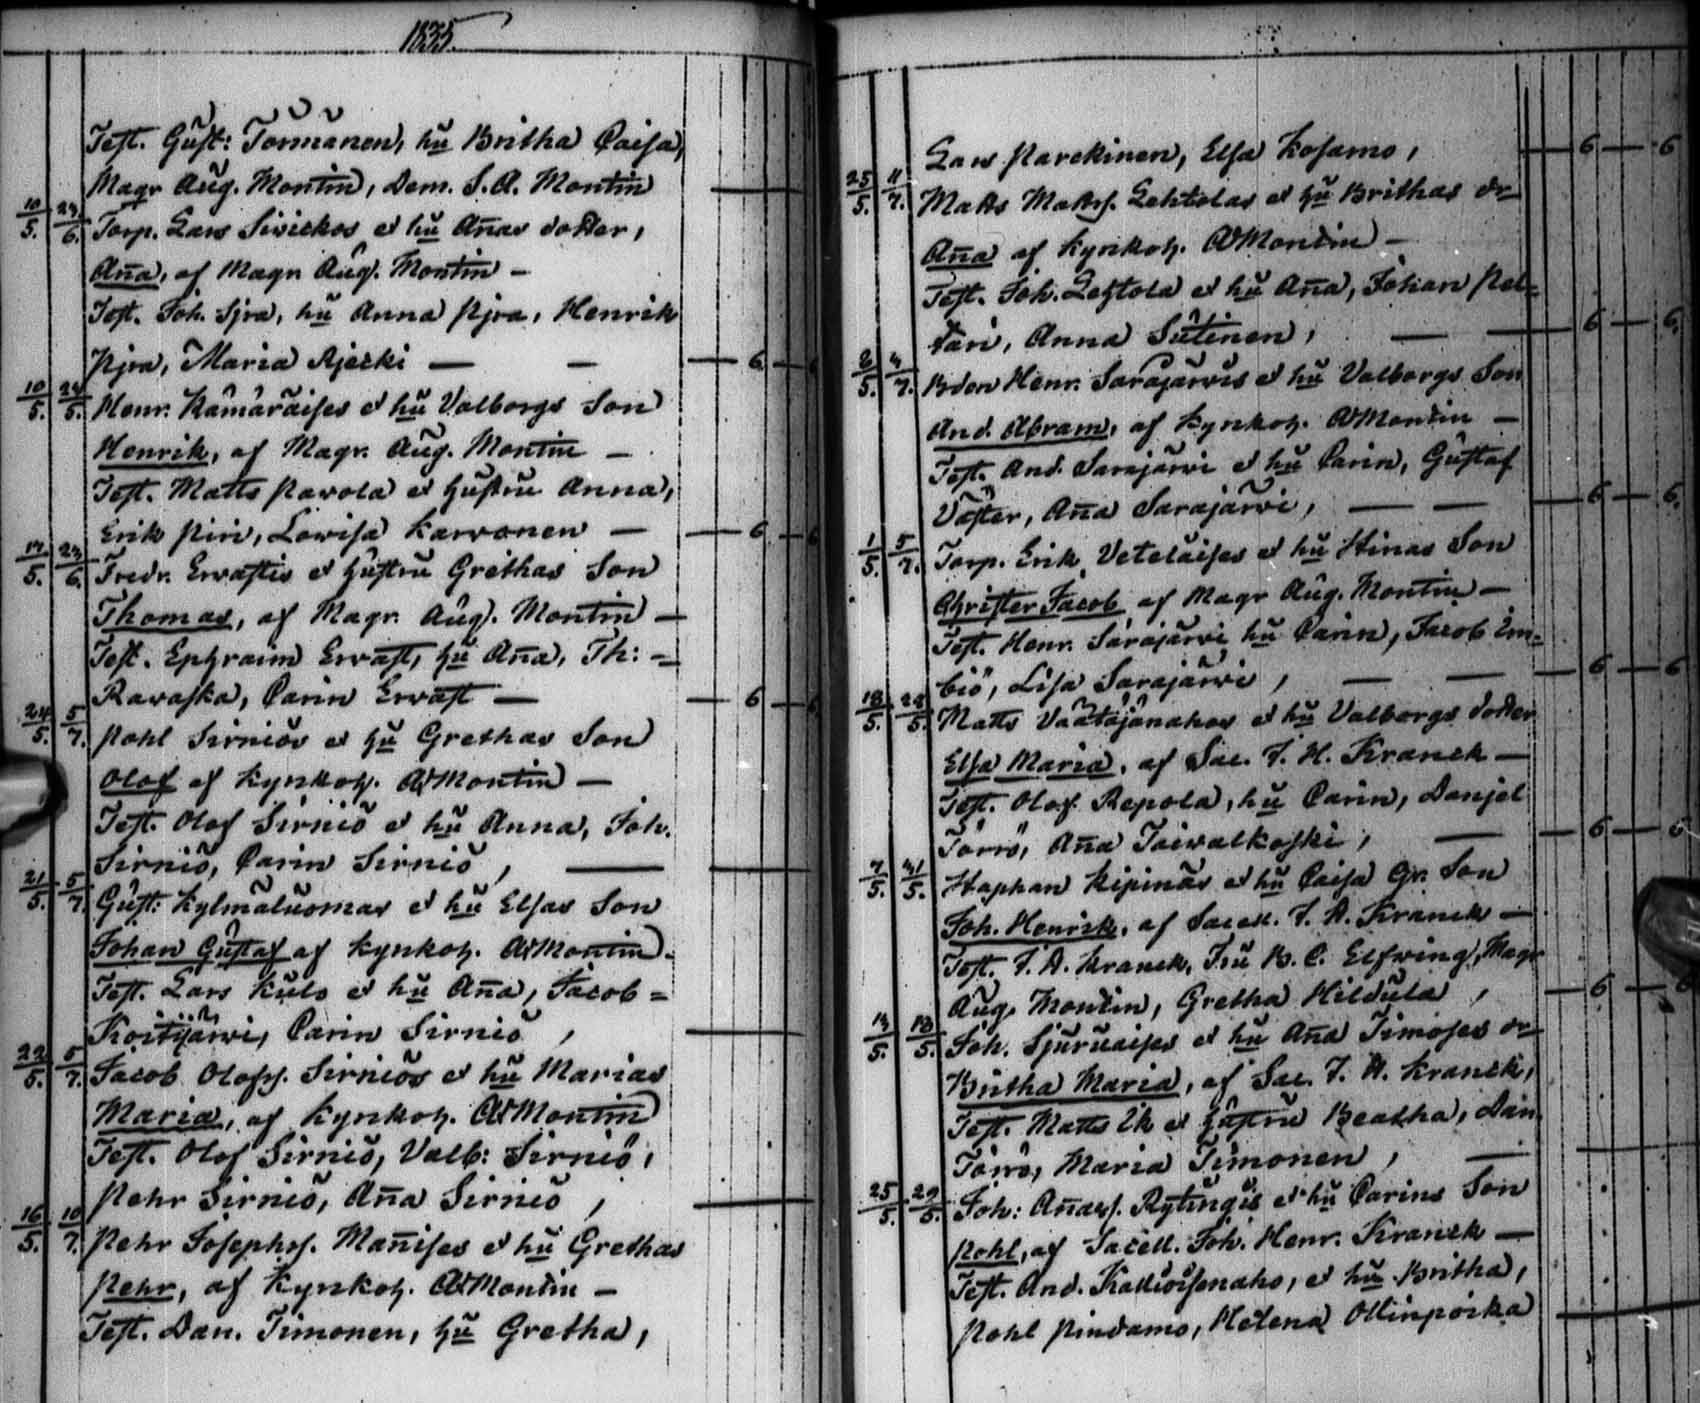 1835.
Test. Gust: Törmänen, hu Britha Caisa,
Magr Aug. Montin, Dem. S. A. Montin
10/5. 24/6. Torp. Lars Sivickos et hu Añas dotter,
Aña, af Magr Aug. Montin –
Test. Joh. Ijra, hu Anna Pjra, Henrik
Pjra, Maria Ajecki — — 6
10/5. 24/5. Henr. Kämäräises et hu Valborgs Son
Henrik, af Magr. Aug. Montin –
Test. Matts Pavola et hustru Anna,
Erik Piri, Lovisa Karvonen — 6
17/5. 24/6. Fredr. Ervastis et hustru Grethas Son
Thomas, af Magr. Aug. Montin –
Test. Ephraim Ervast, hu Aña, Th: =
Ravaska, Carin Ervast — 6
24/5. 5/7. Pohl Sirniös et hu Grethas Son
Olof af Kyrkoh. AMontin –
Test. Olof Sirniö et hu Anna, Joh.
Sirniö, Carin Sirniö,
21/5. 5/7. Gust: Kylmäluomas et hu Elsas Son
Johan Gustaf af Kyrkoh. AMontin.
Test. Lars Kulo et hu Aña, Jacob =
Koitijärvi, Carin Sirniö,
22/5. 5/7. Jacob Olofss. Sirniös et hu Marias
Maria, af Kyrkoh. AMontin
Test. Olof Sirniö, Valb: Sirniö,
Pehr Sirniö, Aña Sirniö,
16/5. 10/7. Pehr Josephs. Mañises et hu Grethas
Pehr, af Kyrkoh. AMontin –
Test. Dan. Timonen, hu Gretha,
Lars Parckinen, Elsa Kosamo, 6 6
25/5. 11/7. Matts Matts. Lehtolas et hu Brithas dr
Aña af Kyrkoh. AMontin –
Test. Joh. Lehtola et hu Aña, Johan Pel=
tari, Anna Sutinen, 6 6
2/5. 4/7. Bden Henr. Sarajärvis et hu Valborgs Son
And. Abram, af Kyrkoh. AMontin –
Test. And. Sarajärvi et hu Carin, Gustaf
Väster, Aña Sarajärvi, 6 6
1/5. 5/7. Torp. Erik Veteläises et hu Stinas Son
Christer Jacob af Magr Aug. Montin –
Test. Henr. Sarajärvi hu Carin, Jacob Im=
biö, Lisa Sarajärvi, 6 6
18/5. 28/5. Matts Vaatojänahos et hu Valborgs dotter
Elsa Maria, af Sac. J. H. Kranck –
Test. Olof Repola, hu Carin, Danjel
Törrö, Aña Toivalkoski, 6 6
7/5. 41/5. Staphan Kipinäs et hu Caisa Gr. Son
Joh. Henrik, af Sacell. J. H. Kranck –
Test. J. H. Kranck, Fru B. C. Elfving, Magr
Aug. Montin, Gretha Hildula, 6 6
14/5. 18/5. Joh. Sjuruaises et hu Aña Timoses dr
Britha Maria, af Sac. J. H. Kranck,
Test. Matts Ek et hustru Beatha, Dan.
Törrö, Maria Timonen,
25/5. 29/5. Joh: Anders. Rytingis et hu Carins Son
Pohl, af Sacell. Joh. Henr. Kranck –
Test. And. Kallioisenaho, et hu Britha,
Pohl Pindamo, Helena Ollinpoika